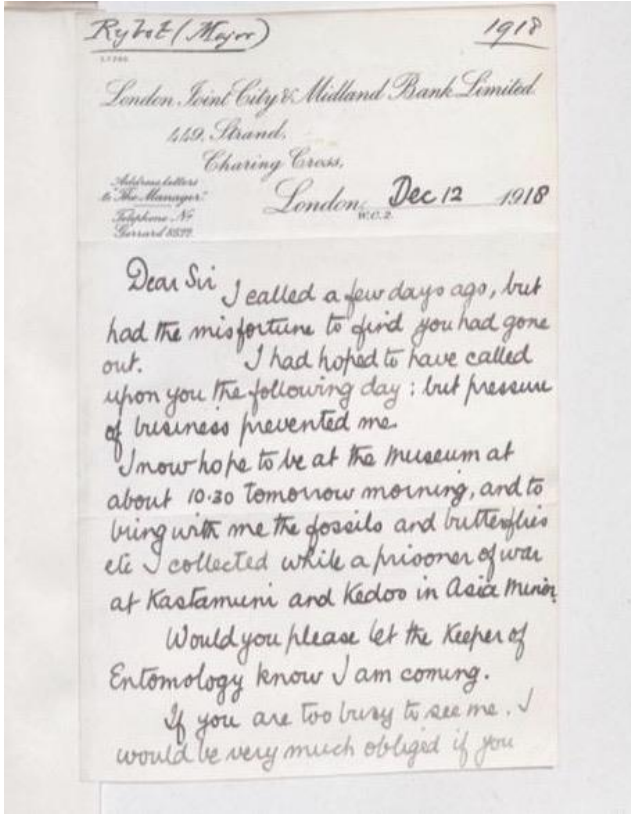 Rybot (Major)
1918
London Joint City & Midland Bank Limited.
449, Strand,
Charing Cross,
Address letters
to "The Manager."
Telephone No
Gerrard
London, Dec 12 1918
W.C.2.
Dear Sir
I called a few days ago, but
had the misfortune to find you had gone
out. I had hoped to have called
upon you the following day : but pressure
of business prevented me.
I now hope to be at the museum at
about 10.30 tomorrow morning, and to
bring with me the fossils and butterflies
etc I collected while a prisoner of war
at Kastamuni and Kedos in Asia Minor.
Would you please let the Keeper of
Entomology know I am coming.
If you are too busy to see me. I
would be very much obliged if you